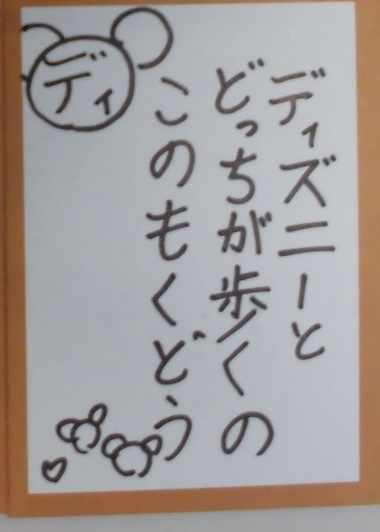 ディズニーと
どっちが歩くの
このもくどう
ディ